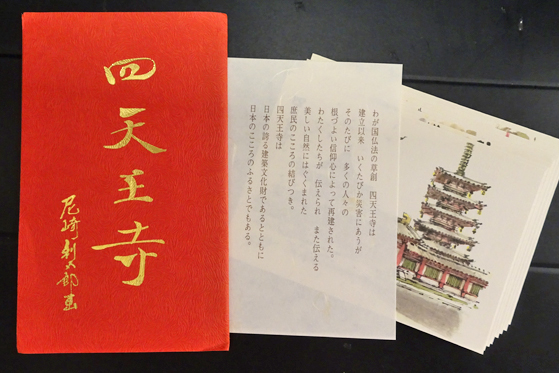 四天王寺
尼崎利太郎画
わが国仏法の草創　四天王寺は
建立以来　いくたびか災害にあうが
そのたびに　多くの人々の
根づよい信仰心によって再建された。
わたくしたちが　伝えられ　また伝える
美しい自然にはぐくまれた
庶民のこころの結びつき。
四天王寺は
日本の誇る建築文化財であるとともに
日本のこころのふるさとでもある。